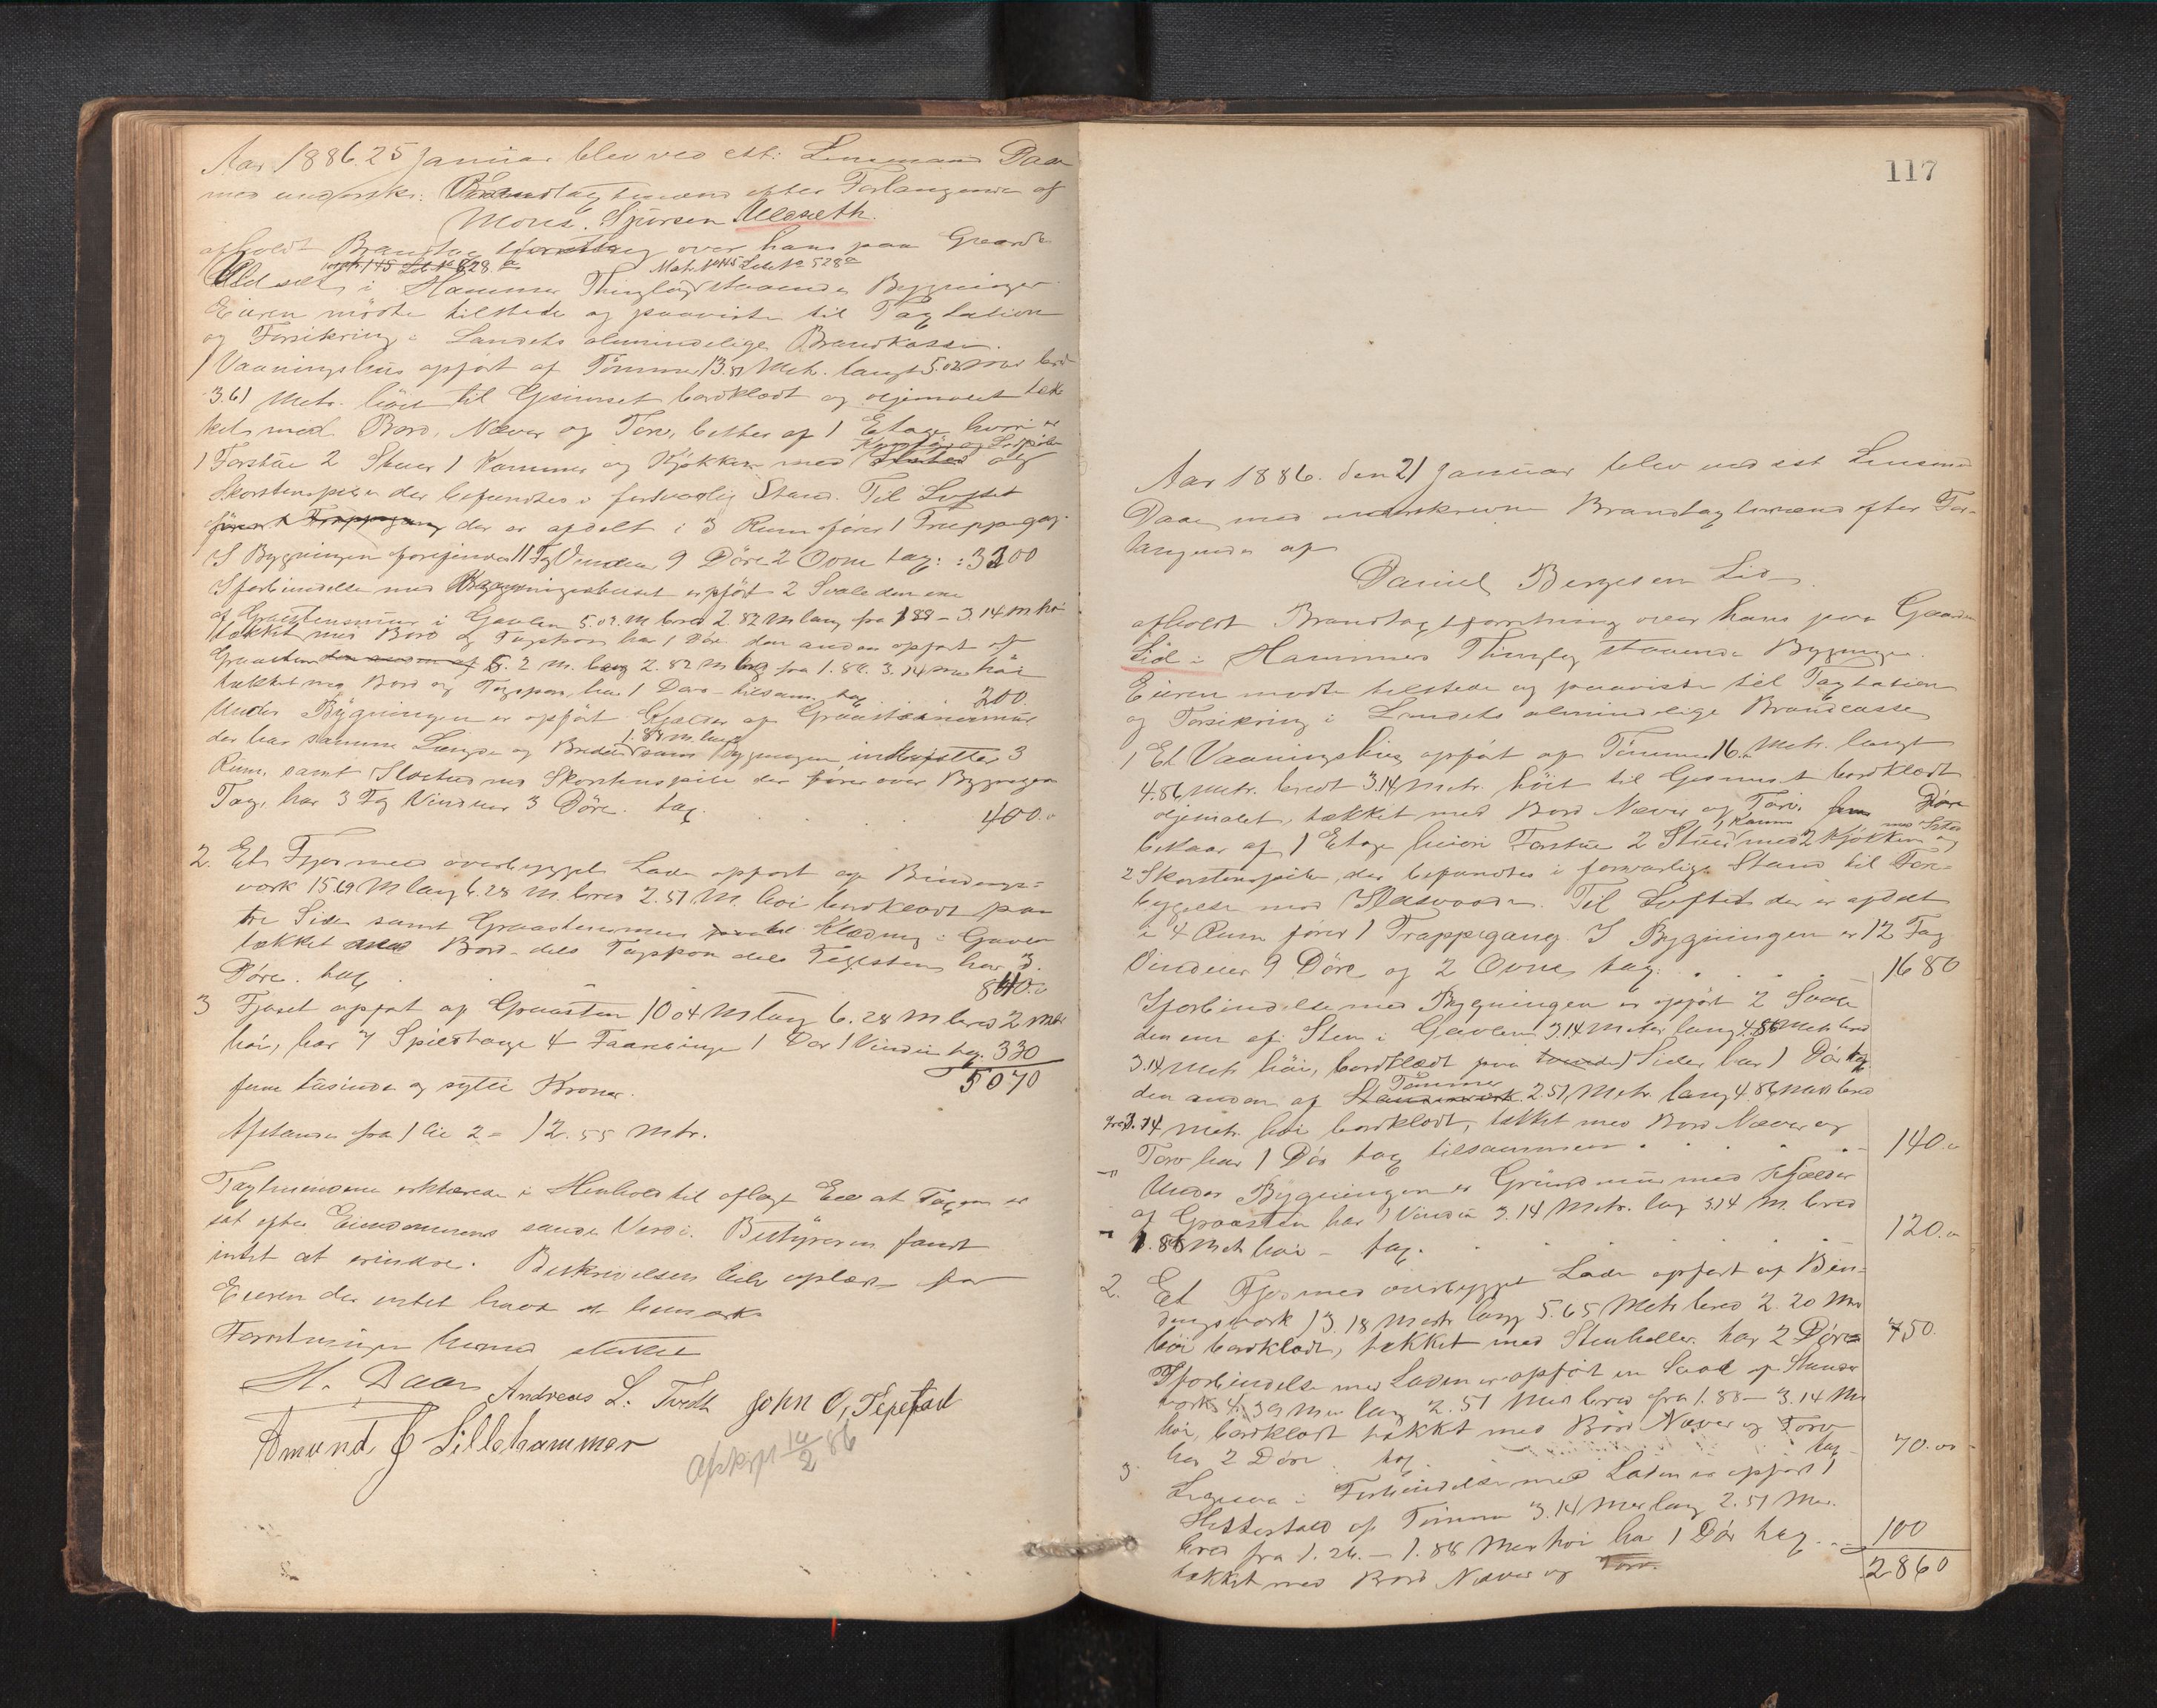 Aar 1886 25 Januar blev ved est: Lensmand Daae
med underskr: Brandtagtmænd efter Forlangende af
Mons. Sjursen Ulesæth.
afholdt Brandtag forretning over hans paa Gaarde
Matr. No 145 Lobe No 528 a
i Hammer Thinglag staaende Bygninger
Eieren mödte tilstede og paaviste til Taxtation
og Forsikring i Landets almindelige Brandkasse.
1 Vaaningshus opfört af Tömmer 13.81 Metr. langt 5.02 Mtr bred
3.61 Metr. höit til Gesimset bordklædt og oljemalet tæk
ket med Bord, Næver og Torv, bestaar af 1 Etage hvori er
1 Forstue 2 Stuer 1 Kammer og Kjökken med og
Skorstenspibe der befandtes i forsvarlig Stand. Til Loftet
förer 1 Trappegang der er afdelt i 3 Rum förer 1 Trappegang.
I Bygningen forefindes 11 Fag Vinduer 9 Döre 2 Ovne tax: 3300
I forbindelse med Vaaningshuset er opfört 2 Svale den ene
af Graastensmur i Gavlen 5.02 M bred 2.82 M lang fra 1.88 - 3.14 m höi
tækket med Bord og Tagspon har 1 Dör. den anden opfört af
Graasten 6.2 M. lang 2.82 M bred fra 1.88. 3.14 m höi
tækket med Bord og Tagspon, har 1 Dör - tilsam. tax 200
Under Bygningen er opfört Kjælder af Graastensmur
1.88 m. höi
der har samme Længde og Bredde som Bygningen indrettet 3
Rum, samt Ildsted med Skorstenspibe der förer over Bygningens
Tag, har 3 Fag Vinduer 3 Döre. tax. 400.
2. Et Fjös med overbygget Lade opfört af Bindings=
værk 15.69 M lang 6.28 M. bred 2.51 M. höi bordklædt paa
tre Sider samt Graastensmur Klædning i Gavlen
tækket med Bord dels Tagspon dels Tagsten, har 3
Döre. tax 840.
3 Fjöset opfört af Graasten 10 04 M lang 6.28 M bred 2 Mtr
höi, har 7 Spilstauge 4 Faarebinge 1 Dör 1 Vindue tax. 330
5070
fem tusinde og sytti Kroner.
Afstanden fra 1 til 2 = 12.55 Mtr.
Taxtmændene erklærede i Henhold til aflagt Eed at Taxten er
sat efter Eiendommens sande Værdi. Bestyreren fandt
intet at erindre. Beskrivelsen blev oplæst for
Eieren der intet havde at bemærke
Forretningen hermed sluttet
H. Daae Andreas L. Tveth John O, Tepstad
Amund J Lillehammer
Afskr 14/2 86
117
Aar 1886. den 21 Januar blev ved est Lensmd
Daae med underskrevne Brandtagtmænd efter For-
langende af
Daniel Bergesen Lid
afholdt Brandtagtforretning over hans paa Gaarden
Lid i Hammers Thinglag staaende Bygninger.
Eieren mödte tilstede og paaviste til Taxtation
og Forsikring i Landets almindelige Brandcasse
1 Et Vaaningshus opfört af Tömmer 16. Metr. langt
4.86 Metr. bredt 3.14 Metr. höit til Gesimset bordklædt
oljemalet, tækket med Bord Næver og Törv.
1 Kamer
bestaar af 1 Etage hvori Forstue 2 Stuer med 2 Kjökken og
2 Skorstenspiber, der befandtes i forsvarlig Stand til Fore=
byggelse mod Ildsvaade. Til Loftet der er afdelt
i 4 Rum förer 1 Trappegang. I Bygningen er 12 Fag
Vinduer 9 Döre og 2 Ovne, tax. 1680
I forbindelse med Bygningen er opfört 2 Svale
den ene af Sten i Gavlen 3.14 Meter lang 4.86 Metr bred
3.14 Metr höi, bordklædt paa 1 Sider har 1 Dör
Tömmer
den anden af 2.51 Metr. lang 4.86 Mtr bred
3.14 Metr. höi bordklædt, tækket med Bord Næver og
Torv har 1 Dör tax tilsammen 140.
Under Bygningen er Grundmur med Kjælder
af Graasten har 1 Vindu 3.14 Metr. lang 3.14 M. bred
1.88 Metr höi - tax. 120.
2. Et Fjös med overbygget Lade opfört af Bin=
dingsværk 13.18 Metr lang 5.65 Metr bred 2.20 Mtr
höi bordklædt, tækket med Stenheller. har 2 Döre 750.
I forbindelse med Laden er opfört en Sval af Stander
værk 4.39 Mtr lang 2.51 Mtr bred fra 1.88 - 3.14 Mtr
höi, bordklædt tækket med Bord Næver og Torv
har 2 Döre. tax. 70.00
3. Ligesaa i Forbindelse med Laden er opfört 1
Hestestald af Tömmer 3.14 Mtr lang 2.51 Mtr.
bred fra 1.26 - 1.88 Mtr höi har 1 Dör tax. 100
tækket med Bord Næver og Torv. 2860